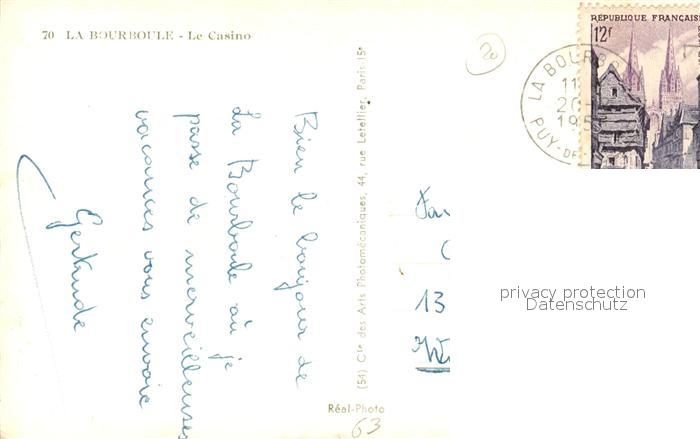 70 LA BOURBOULE - Le Casino
20
RÉPUBLIQUE FRANÇAIS
12f
LA BOURBO
11
20
195
PUY-DE-
Bien le bonjour de
La Bourboule où je
passe de merveilleuses
vacances vous envoie
Gertrude
(54) Cie des Arts Photomécaniques, 44, rue Letellier, Paris-15e
13
privacy protection
Datenschutz
Réal-Photo
63